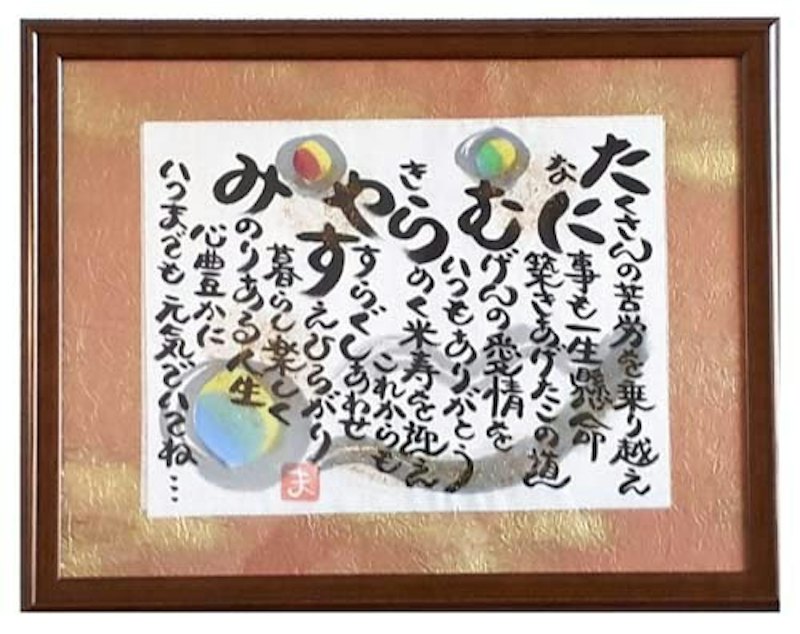 たくさんの苦労を乗り越え
なに事も一生懸命
築きあげたこの道
むげんの愛情を
いつもありがとう
きらめく米寿を迎え
これからも
やすらぐしあわせ
すえひろがり
暮らし楽しく
みのりある人生
心豊かに
いつまでも元気でいてね…
ま